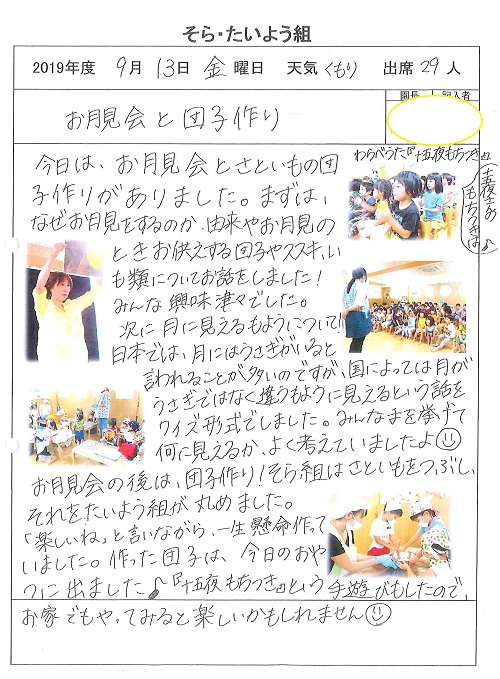 そら・たいよう組
2019年度 9月13日 金曜日 天気 くもり 出席 29人
園長 記入者
お月見会と団子作り
わらべうた『十五夜もちつき』
十五夜さあの
もちつきは♪
今日は、お月見会とさといもの団
子作りがありました。まずは、
なぜお月見をするのか、由来やお月見の
ときお供えする団子やススキ、い
も類についてお話をしました!
みんな興味津々でした。
次に月に見えるもようについて!
日本では、月にはうさぎがいると
言われることが多いのですが、国によっては月が
うさぎではなく違うもように見えるという話を
クイズ形式でしました。みんな手を挙げて
何に見えるか、よく考えていましたよ☺
お月見会の後は、団子作り!そら組はさといもをつぶし、
それをたいよう組が丸めました。
「楽しいね」と言いながら、一生懸命作って
いました。作った団子は、今日のおや
つに出ました♪『十五夜もちつき』という手遊びもしたので、
お家でもやってみると楽しいかもしれません☺